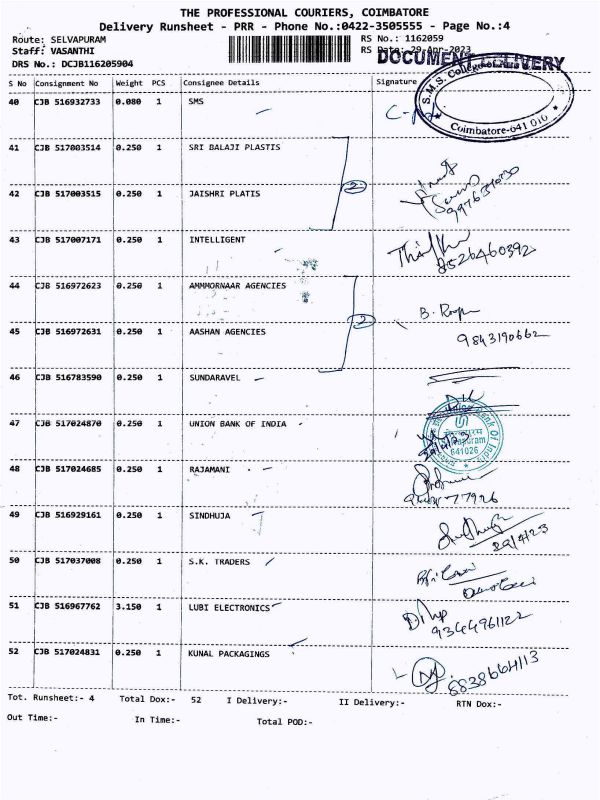 THE PROFESSIONAL COURIERS, COIMBATORE
Delivery Runsheet - PRR - Phone No.:0422-3505555 - Page No.:4
Route: SELVAPURAM RS No.: 1162059
Staff: VASANTHI RS Date: 29-Apr-2023
DRS No.: DCJB116205904
DOCUMENT DELIVERY
S No Consignment No Weight PCS Consignee Details Signature
S.M.S. College
Coimbatore-641 010
40 CJB 516932733 0.080 1 SMS
41 CJB 517003514 0.250 1 SRI BALAJI PLASTIS
2
42 CJB 517003515 0.250 1 JAISHRI PLATIS
43 CJB 517007171 0.250 1 INTELLIGENT
8526460392
44 CJB 516972623 0.250 1 AMMMORNAAR AGENCIES
2
45 CJB 516972631 0.250 1 AASHAN AGENCIES
9843190662
46 CJB 516783590 0.250 1 SUNDARAVEL
47 CJB 517024870 0.250 1 UNION BANK OF INDIA
Union Bank Of India
641026
48 CJB 517024685 0.250 1 RAJAMANI
49 CJB 516929161 0.250 1 SINDHUJA
29/4/23
50 CJB 517037008 0.250 1 S.K. TRADERS
51 CJB 516967762 3.150 1 LUBI ELECTRONICS
Dilip
9344961122
52 CJB 517024831 0.250 1 KUNAL PACKAGINGS
8838664113
Tot. Runsheet:- 4 Total Dox:- 52 I Delivery:- II Delivery:- RTN Dox:-
Out Time:- In Time:- Total POD:-